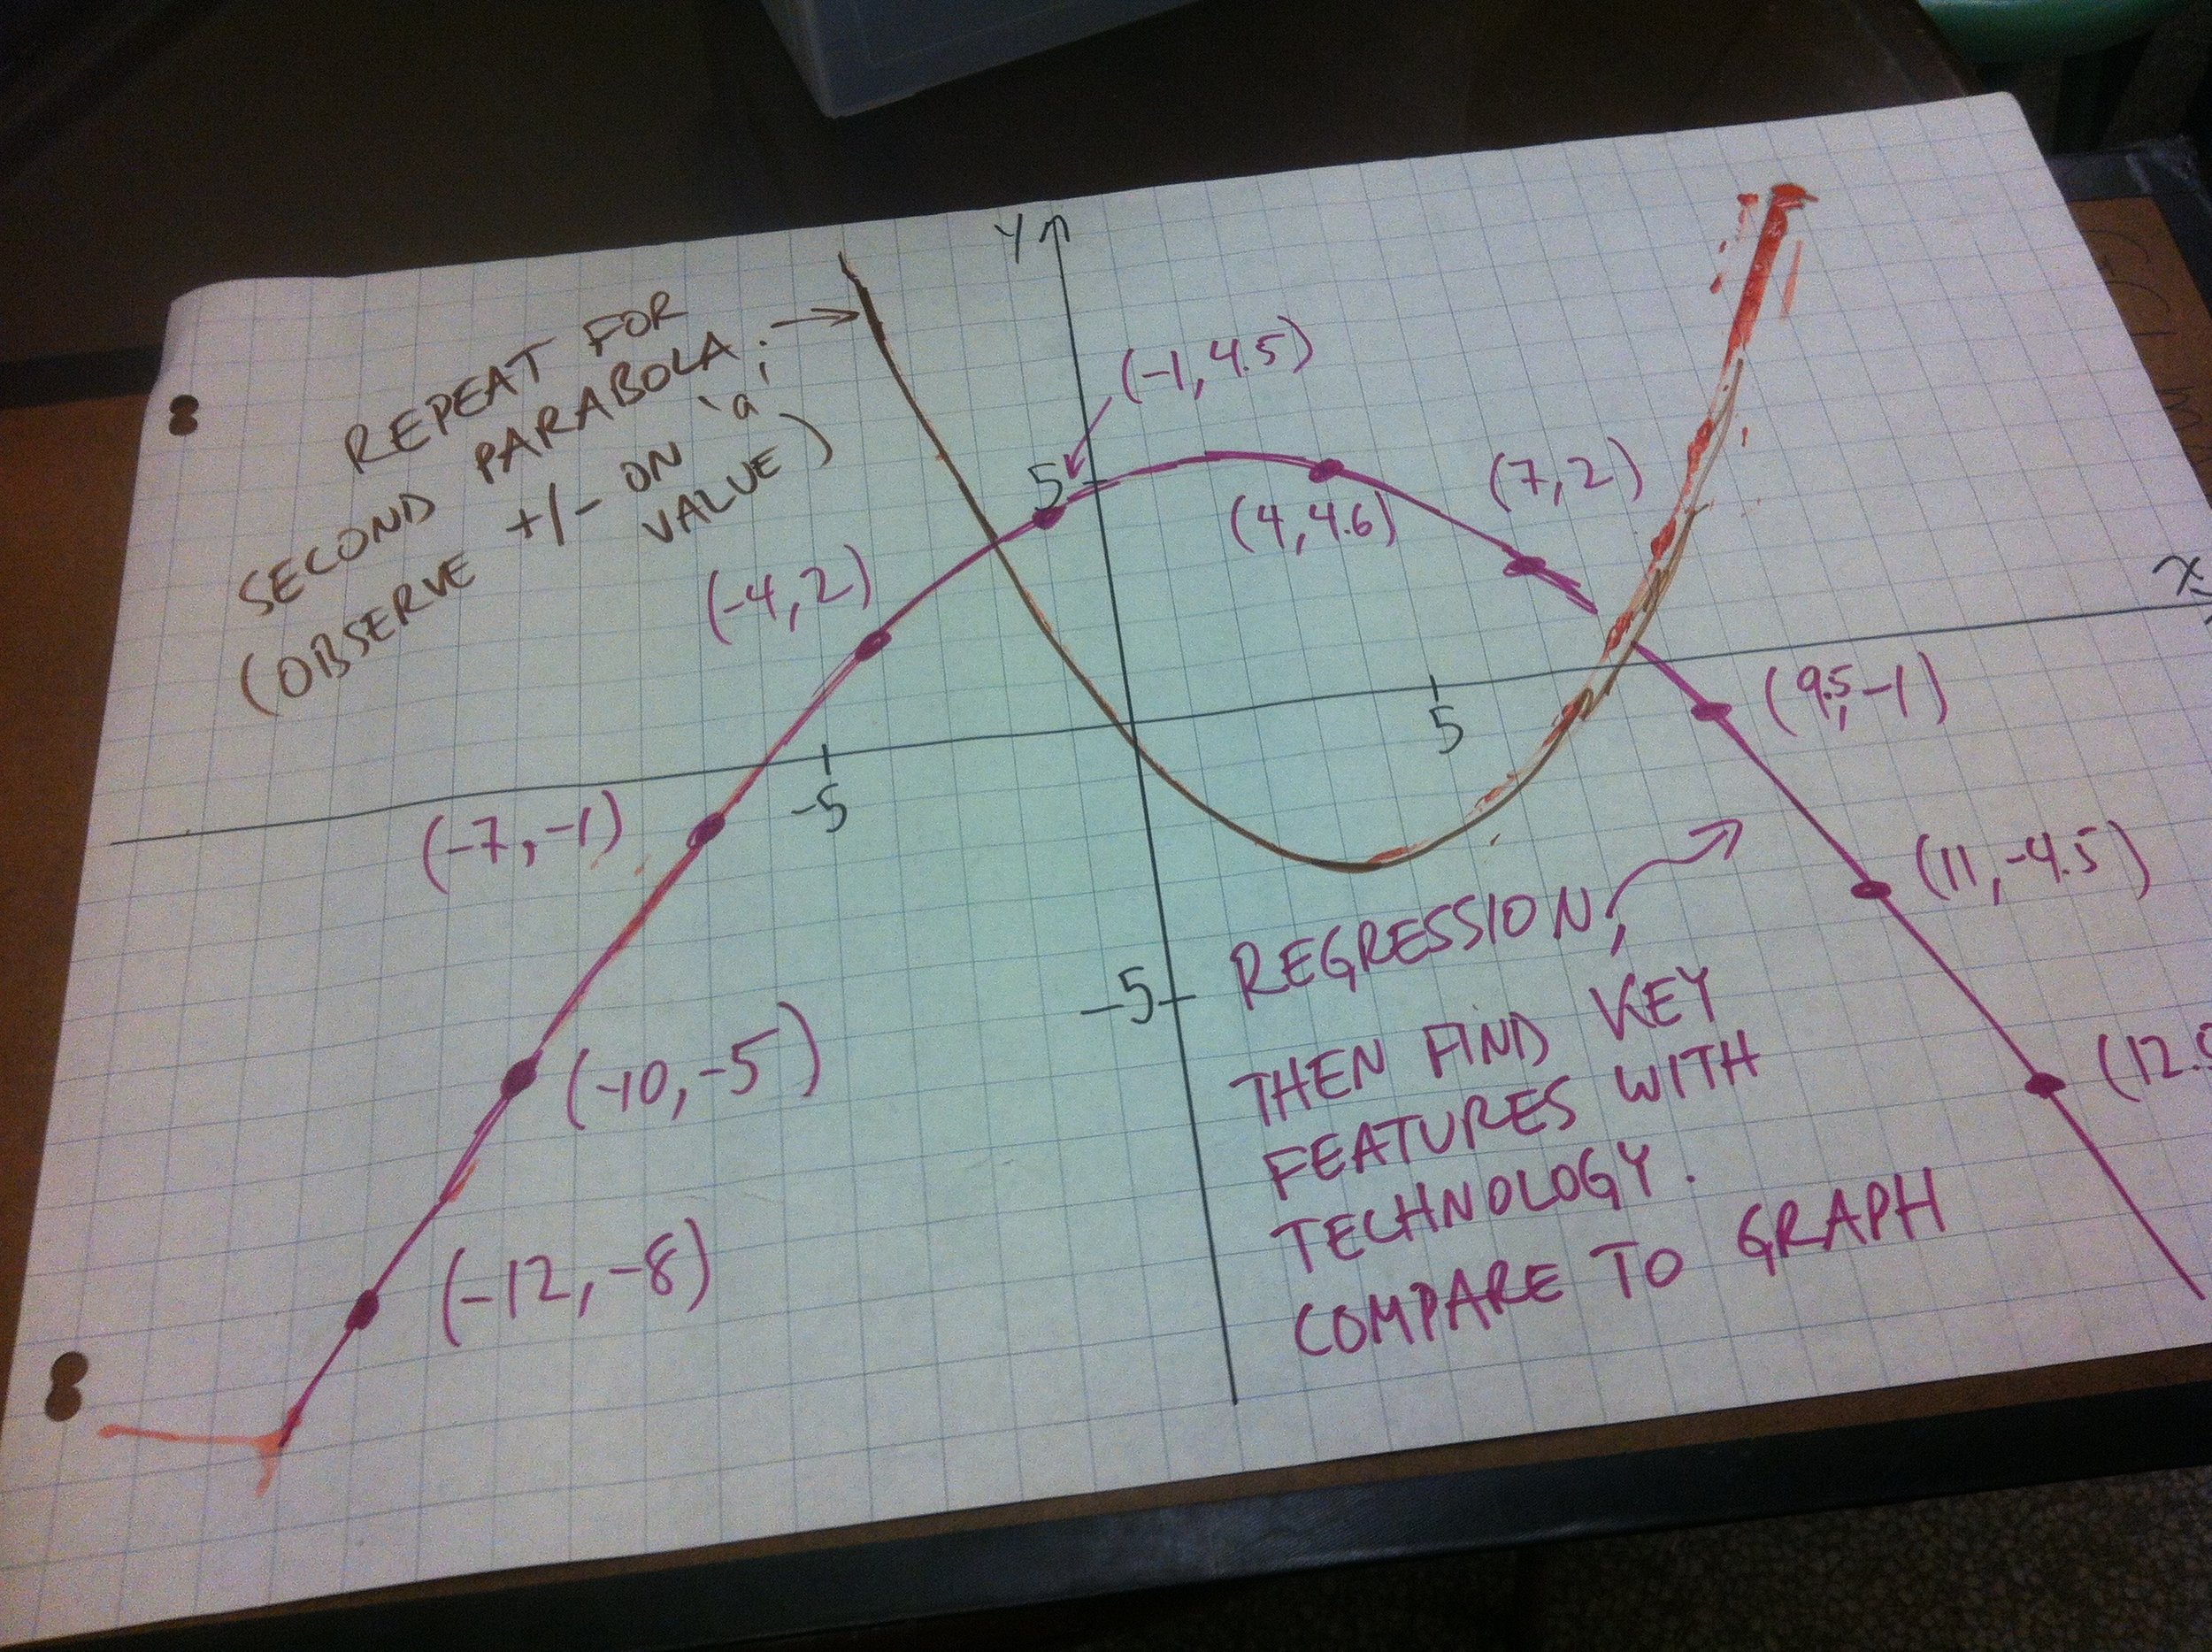 REPEAT FOR
SECOND PARABOLA;
(OBSERVE +/- ON 'a'
VALUE)
y
x
5
-5
5
-5
(-1, 4.5)
(4, 4.6)
(7, 2)
(-4, 2)
(9.5, -1)
(-7, -1)
(11, -4.5)
(-10, -5)
(-12, -8)
REGRESSION,
THEN FIND KEY
FEATURES WITH
TECHNOLOGY.
COMPARE TO GRAPH